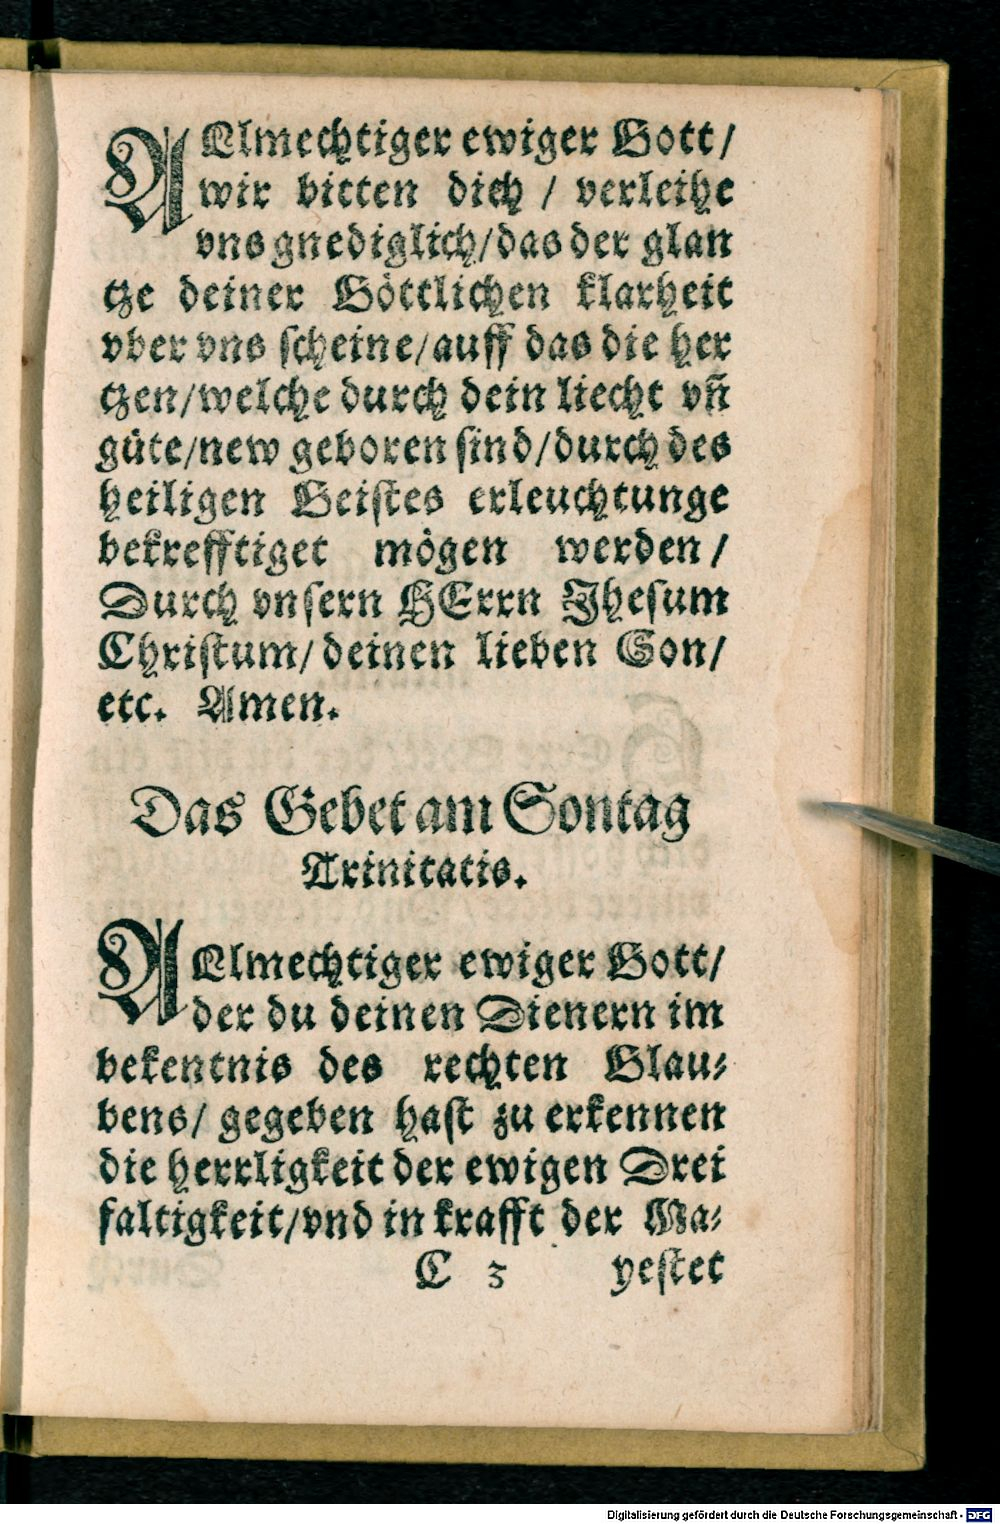 ALlmechtiger ewiger Gott/
wir bitten dich / verleihe
vns gnediglich/das der glan
tze deiner Göttlichen klarheit
vber vns scheine/auff das die her
tzen/welche durch dein liecht vñ
güte/new geboren sind/durch des
heiligen Geistes erleuchtunge
bekrefftiget mögen werden/
Durch vnsern HErrn Jhesum
Christum/deinen lieben Son/
etc. Amen.
Das Gebet am Sontag
Trinitatis.
ALlmechtiger ewiger Gott/
der du deinen Dienern im
bekentnis des rechten Glau⸗
bens/ gegeben hast zu erkennen
die herrligkeit der ewigen Drei
faltigkeit/vnd in krafft der Ma⸗
C 3 yestet
Digitalisierung gefördert durch die Deutsche Forschungsgemeinschaft - DFG